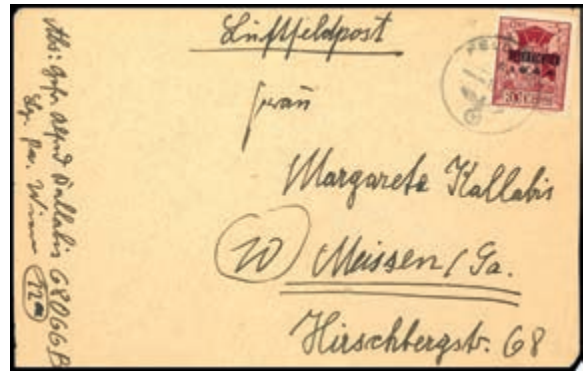 Luftfeldpost
Frau
Margarete Kallabis
10 Meissen/Sa.
Hirschbergstr. 68
Abs: Gefr. Alfred Kallabis 68066B
Wien
12a
FELD